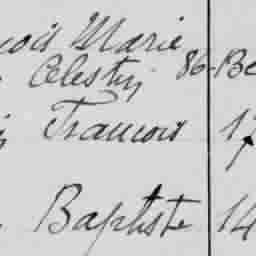 çois Marie
Célestin 86-Be
François 17
Baptiste 14